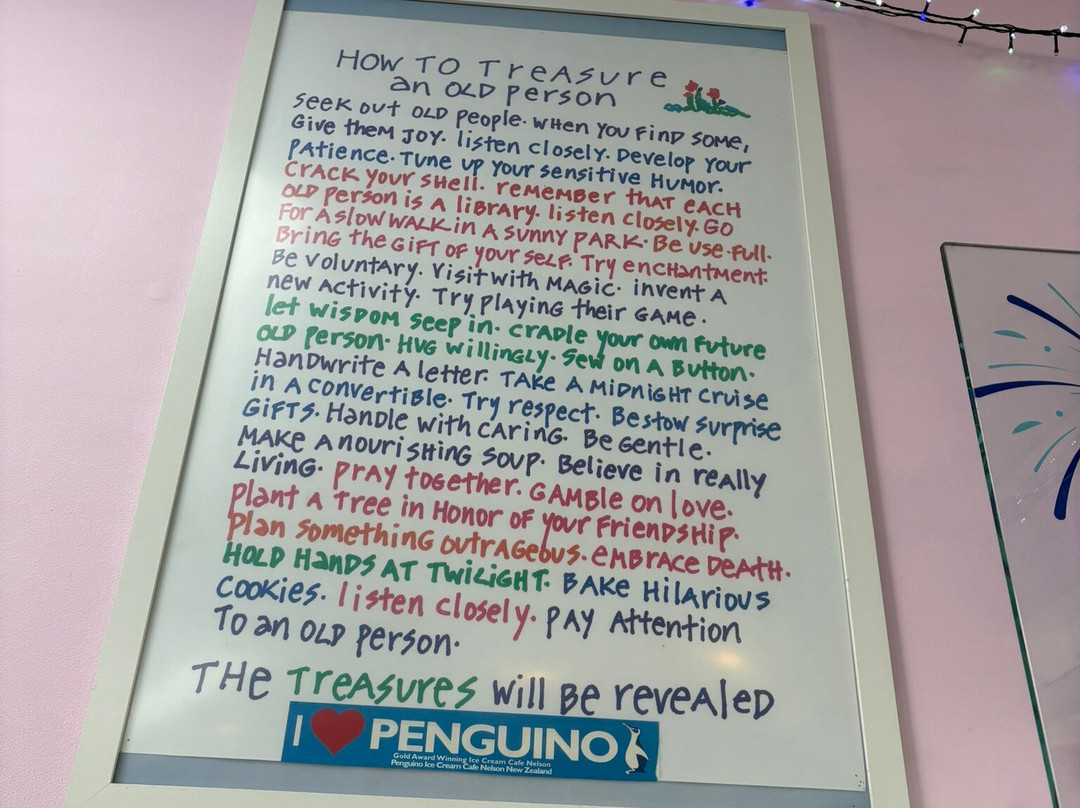 HOW TO TreASure
an OLD person
Seek out OLD people. When you find some,
Give them Joy. listen closely. Develop your
Patience. Tune up your sensitive Humor.
Crack your shell. remember that each
OLD person is a library. listen closely. Go
For a slow walk in a sunny park. Be use-full.
Bring the gift of your self. Try enchantment.
Be voluntary. Visit with magic. invent a
new activity. Try playing their game.
let wisdom seep in. Cradle your own future
OLD person. Hug willingly. Sew on a button.
Handwrite a letter. Take a midnight cruise
in a convertible. Try respect. Bestow surprise
gifts. Handle with caring. Be gentle.
Make a nourishing soup. Believe in really
Living. Pray together. Gamble on love.
Plant a tree in Honor of your friendship.
Plan something outrageous. embrace death.
HOLD Hands at twilight. Bake Hilarious
cookies. listen closely. Pay Attention
To an OLD person.
THe TreASures will Be revealeD
I ❤ PENGUINO
Gold Award Winning Ice Cream Cafe Nelson
Penguino Ice Cream Cafe Nelson New Zealand